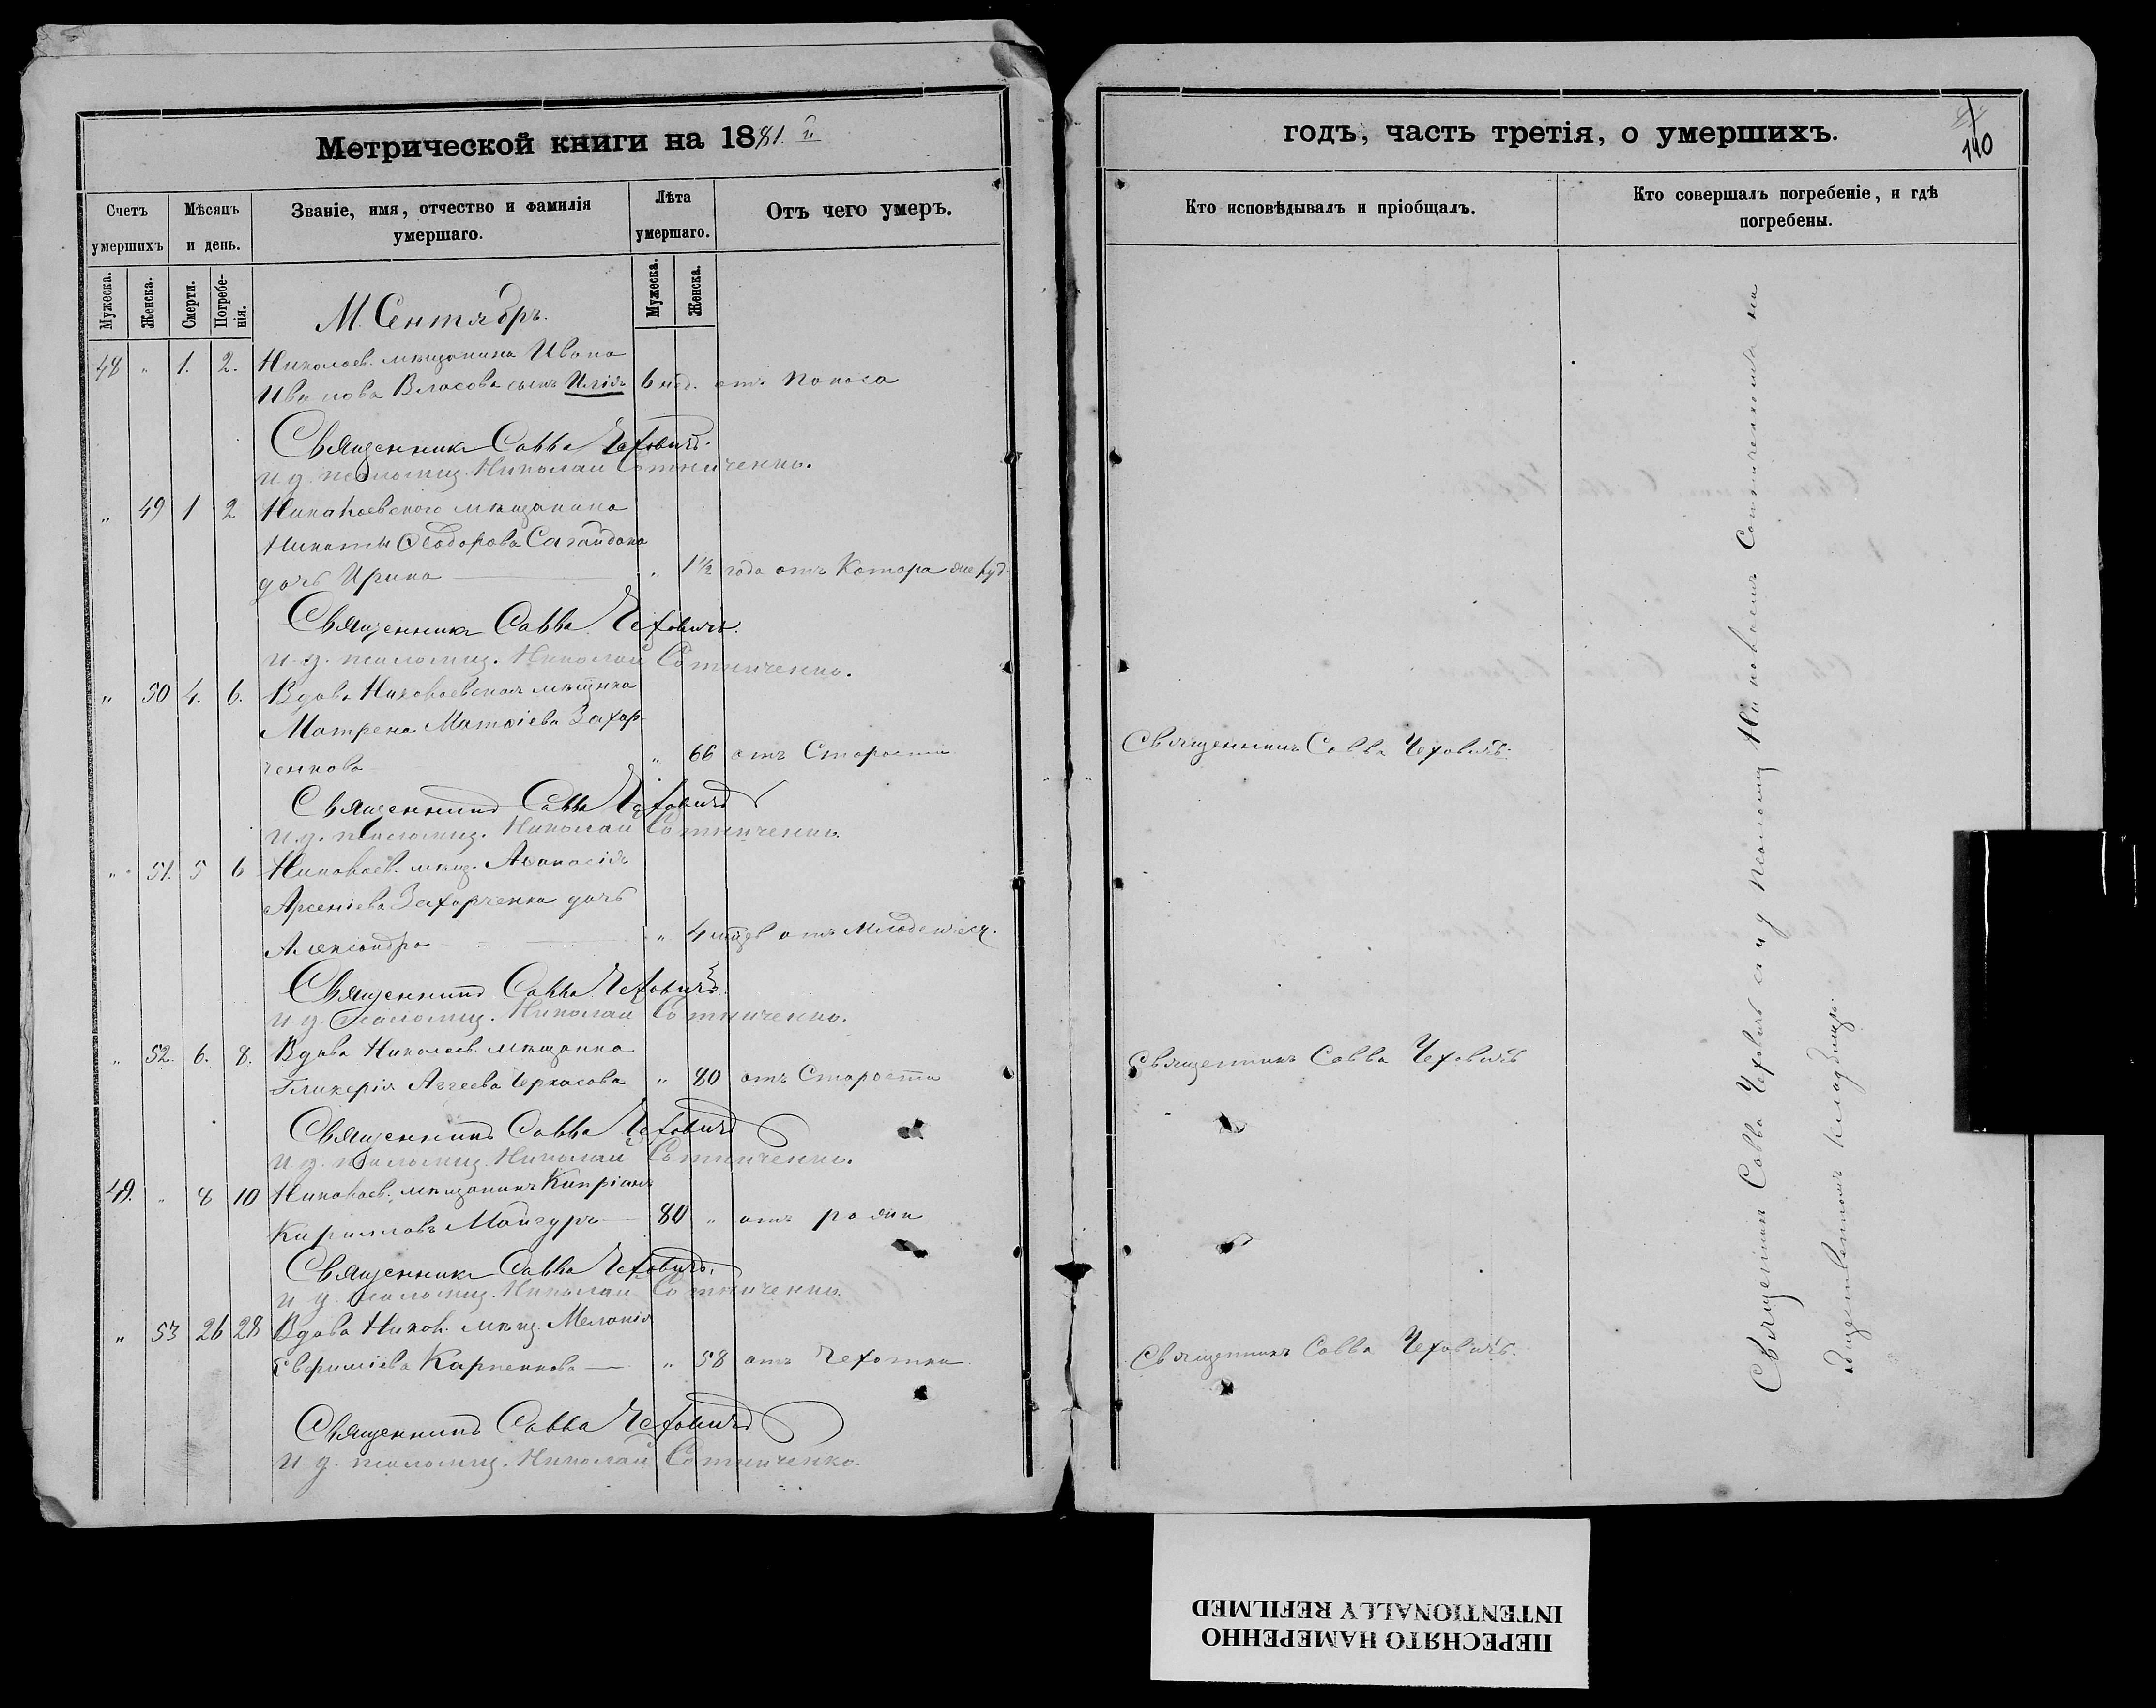 Метрической книги на 1881 й
Счетъ умершихъ
Мѣсяцъ и день.
Званіе, имя, отчество и фамилія умершаго.
Лѣта умершаго.
Отъ чего умеръ.
Мужеска.
Женска.
Смерти.
Погребе-
нія.
Мужеска.
Женска.
М. Сентябрь.
48 " 1. 2. Николаев. мѣщанина Ивана
Иванова Власова сынъ Илія 6 нед. отъ поноса
Священникъ Савва Чеховичъ.
И. д. псаломщ. Николай Сотниченко.
" 49 1 2 Николаевскаго мѣщанина
Никиты Ѳеодорова Сагайдака
дочь Ирина " 1½ года отъ Катара
Священникъ Савва Чеховичъ.
И. д. псаломщ. Николай Сотниченко.
" 50 4. 6. Вдова Николаевская мѣщанка
Матрена Матѳіева Захар-
ченкова " 66 отъ Старости
Священникъ Савва Чеховичъ
И. д. псаломщ. Николай Сотниченко.
" 51. 5 6 Николаев. мѣщ. Аѳанасія
Арсеніева Захарченка дочь
Александра " 4 отъ Младенческ.
Священникъ Савва Чеховичъ.
И. д. псаломщ. Николай Сотниченко.
" 52. 6. 8. Вдова Николаев. мѣщанка
Гликерія Авгеева Черкасова " 80 отъ Старости
Священникъ Савва Чеховичъ
И. д. псаломщ. Николай Сотниченко.
49. " 8 10 Николаев. мѣщанинъ Кипріанъ
Кирилловъ Мангуръ 80 " отъ рожи
Священникъ Савва Чеховичъ.
И. д. псаломщ. Николай Сотниченко.
" 53 26 28 Вдова Никол. мѣщ. Меланія
Евфиміева Карпенкова " 58 отъ Чахотки
Священникъ Савва Чеховичъ
И. д. псаломщ. Николай Сотниченко.
годъ, часть третія, о умершихъ.
140
Кто исповѣдывалъ и пріобщалъ.
Кто совершалъ погребеніе, и гдѣ
погребены.
Священникъ Савва Чеховичъ.
Священникъ Савва Чеховичъ
Священникъ Савва Чеховичъ.
Священникъ Савва Чеховичъ съ и д псаломщ Николаемъ Сотниченкомъ на
общественномъ кладбищѣ.
ПЕРЕСНЯТО НАМЕРЕННО
INTENTIONALLY REFILMED